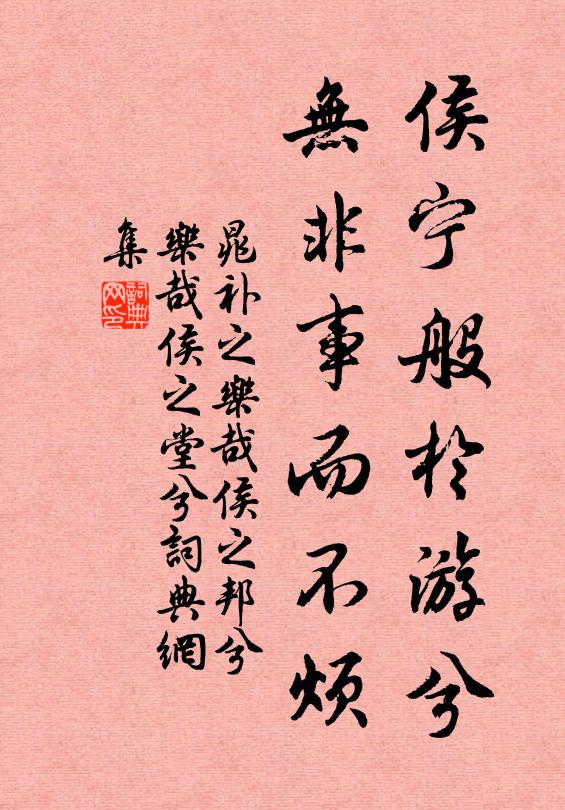 侯宁般於游兮
無非事而不煩
晁补之樂哉侯之邦兮
樂哉侯之堂兮詞典網
集
詞典
网印